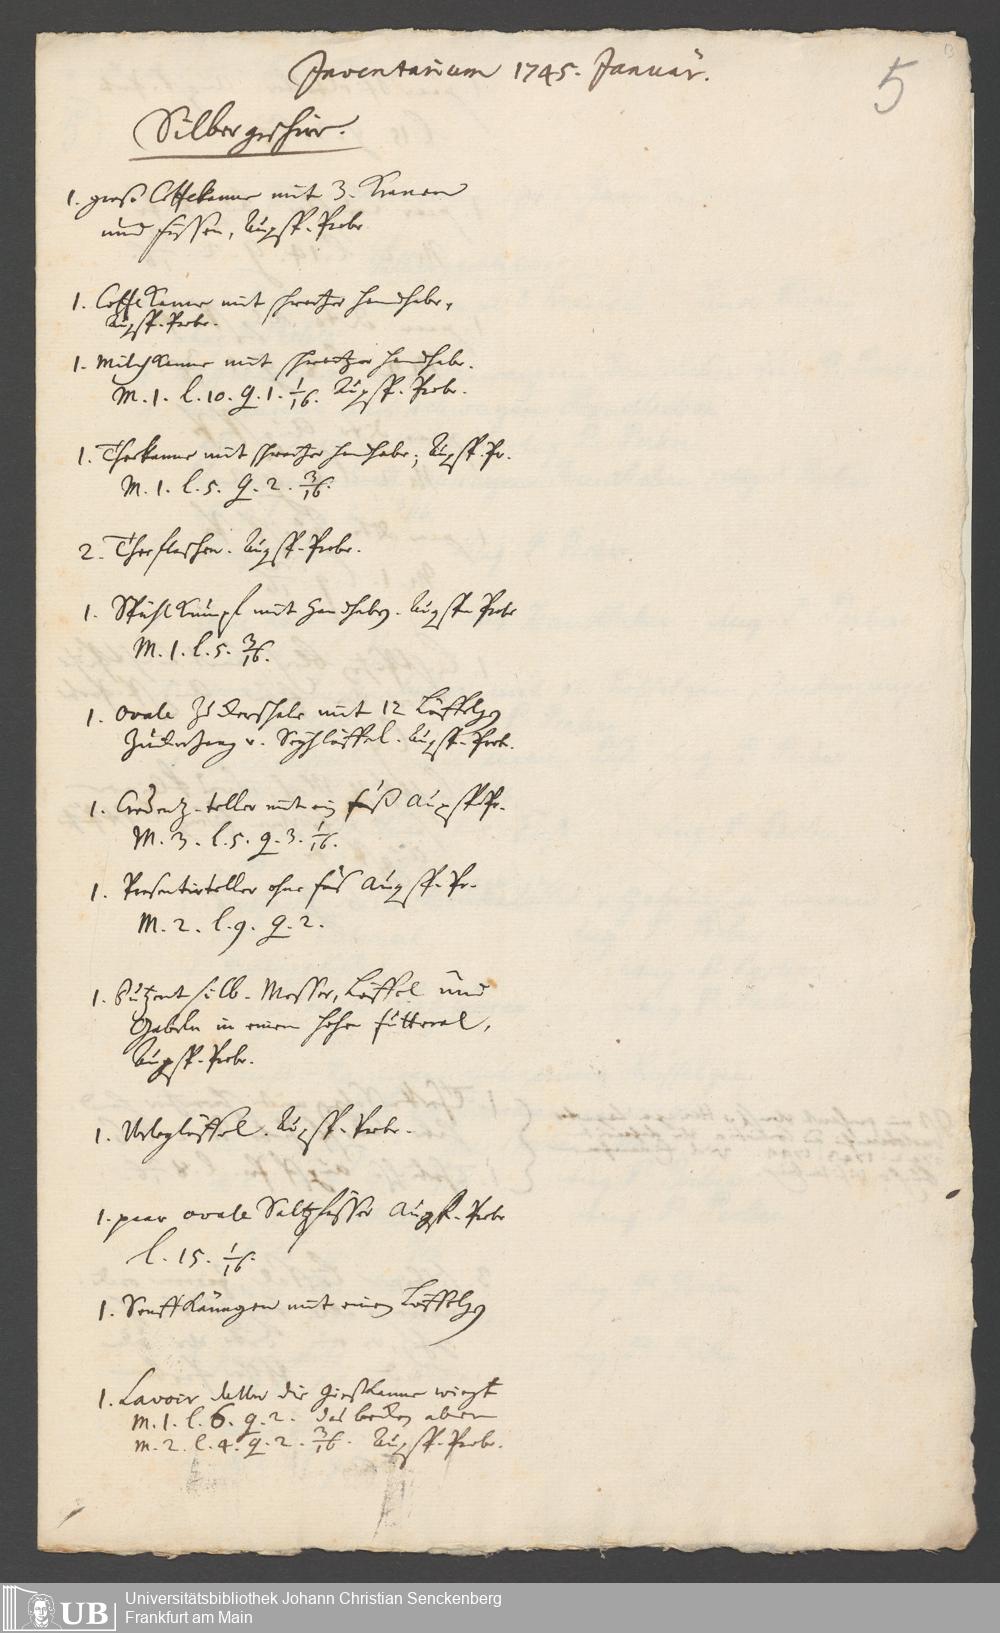 Inventarium 1745. Januar.
5
Silbergeschirr.
1. große Coffekanne mit 3. Kranen
und Füssen, Augsp. Probe
1. Coffe Kanne mit schwartzer Handhabe,
Augsp. Probe.
1. Milch Kanne mit schwartzer Handhabe.
M. 1. l. 10. q. 1. 1/16. Augsp. Probe.
1. Theekanne mit schwartzer Handhabe; Augsp. Pr.
M. 1. l. 5. q. 2. 3/16.
2. Theeflaschen. Augsp. Probe.
1. Spühl Kumpf mit Handhaben. Augsp. Probe
M. 1. l. 5. 3/16.
1. ovale Zuckerschale mit 12 Löffelgen
Zuckerzang u. Seyhlöffel. Augsp. Prob.
1. Credentz-teller mit ein fuß Augsp. Pr.
M. 3. l. 5. q. 3. 1/16.
1. Presentirteller ohne fus Augsp. Pr.
M. 2. l. 9. q. 2.
1. Dutzent silb. Messer, Löffel und
Gabeln in einem hohen futteral,
Augsp. Probe.
1. Vorleglöffel. Augsp. Probe.
1. paar ovale Saltzfässer Augsp. Probe
l. 15. 1/16.
1. Senff Kängen mit einem Löffelgen
1. Lavoir davon die Gießkanne wiegt
M. 1. l. 6. q. 2. das becken aber
M. 2. l. 4. q. 2. 3/16. Augsp. Probe.
UB
Universitätsbibliothek Johann Christian Senckenberg
Frankfurt am Main